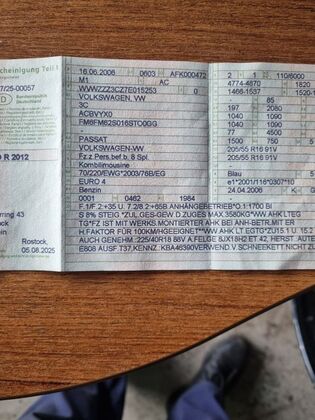 scheinigung Teil I
7/25-00057
Bundesrepublik
Deutschland
D
O R 2012
Rostock,
05.08.2025
16.06.2006 0603 AFK000472
M1 AC
WVWZZZ3CZ7E015253 0
VOLKSWAGEN, VW
3C
ACBVYX0
FM6FM62S016STO0GG
-
PASSAT
VOLKSWAGEN-VW
Fz.z.Pers.bef.b. 8 Spl.
Kombilimousine
70/220/EWG*2003/76B/EG
EURO 4
Benzin
0001 0462 1984
2 1 110/6000
4774-4870 1820
1466-1517 1520-1
85
197 2080
1040 1090
1040 1090
77 4500
1500 750
205/55 R16 91V
205/55 R16 91V
Blau 5
e1*2001/116*0307*10
24.04.2006 K
F.1/F.2:+35 U. 7.2/8.2:+65B ANHÄNGEBETRIEB*O.1:1700 BI
S 8% STEIG.*ZUL.GES-GEW.D.ZUGES MAX.3580KG*VW AHK LT.EG
TG*FZ IST MIT WERKS MONTIERTER AHK BEI ANH-BETR.MIT ER
H.FAKTOR FÜR 100KM/HGEEIGNET**VW AHK LT.EGTG*ZU15.1 U.15.2
AUCH GENEHM.:225/40R18 88V A.FELGE 8JX18H2 ET